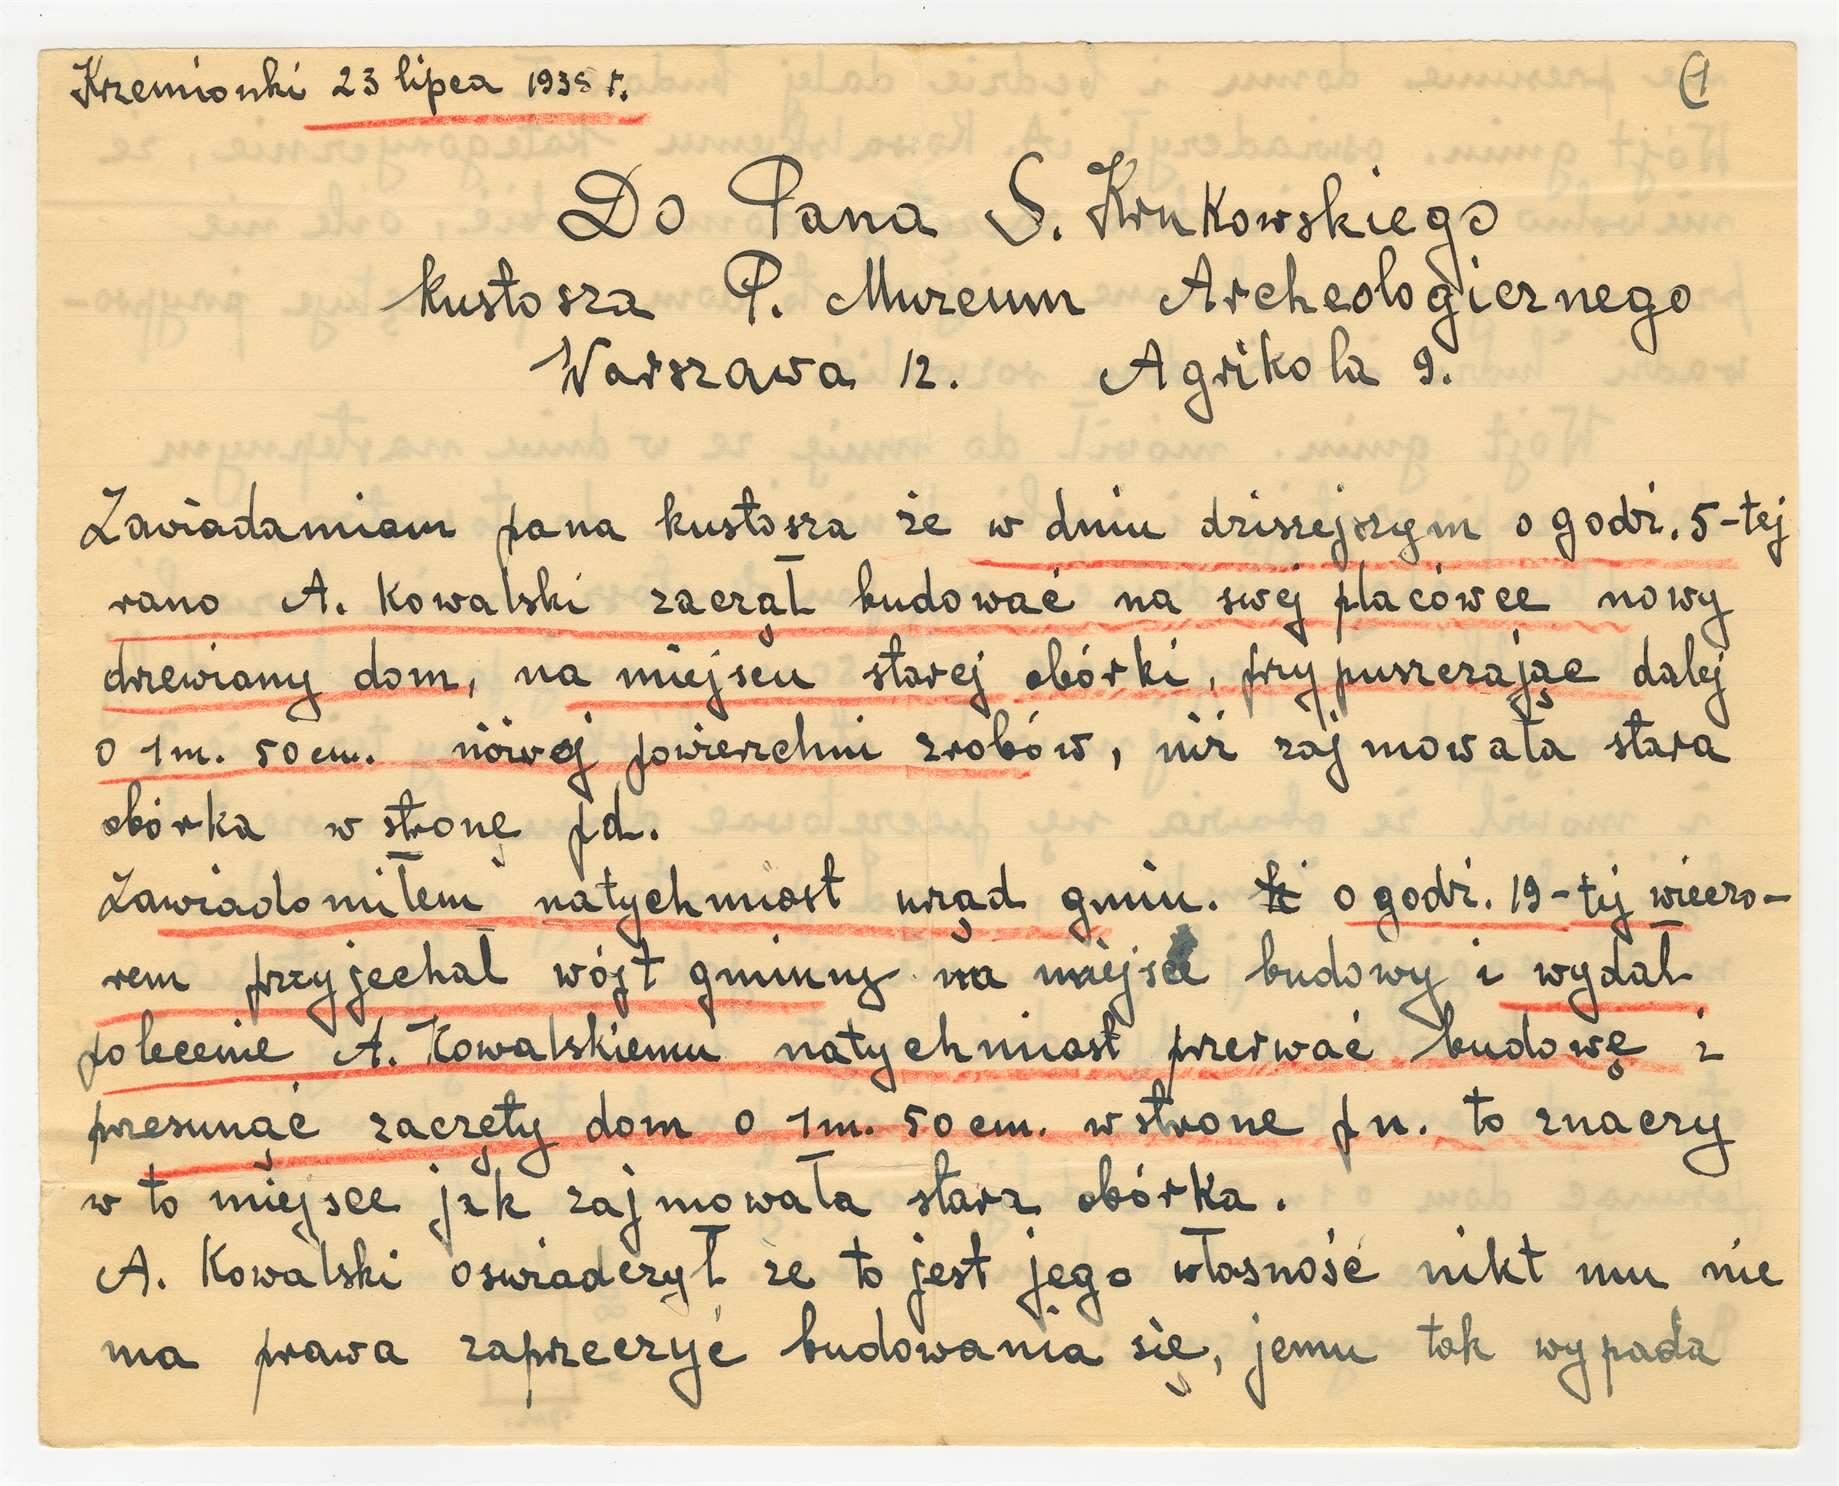 Krzemionki 23 lipca 1935 r.
1
Do Pana S. Krukowskiego
kustosza P. Muzeum Archeologicznego
Warszawa 12. Agrikola 9.
Zawiadamiam pana kustosza że w dniu dzisiejszym o godz. 5-tej
rano A. Kowalski zaczął budować na swej placówce nowy
drewiany dom, na miejscu starej obórki, przypuszczając dalej
o 1 m. 50 cm. nówej powierzchni zrobów, niż zajmowała stara
obórka w stronę pd.
Zawiadomiłem natychmiast urząd gmin. o godz. 19-tej wieczo-
rem przyjechał wójt gminny na miejsce budowy i wydał
polecenie A. Kowalskiemu natychmiast przerwać budowę i
presunąć zaczęty dom o 1 m. 50 cm. w strone pn. to znaczy
w to miejsce jak zajmowała stara obórka.
A. Kowalski oswiadczył ze to jest jego własność nikt mu nie
ma prawa zaprzeczyć budowania się, jemu tak wypada